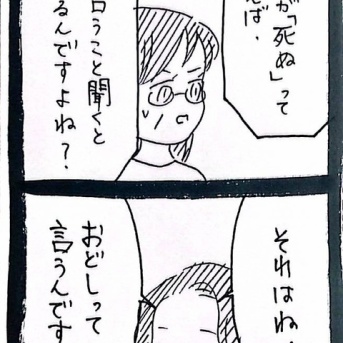 が「死ぬ」って
えば、
言うこと聞くと
るんですよね？
それはね、
おどしって
言うんです